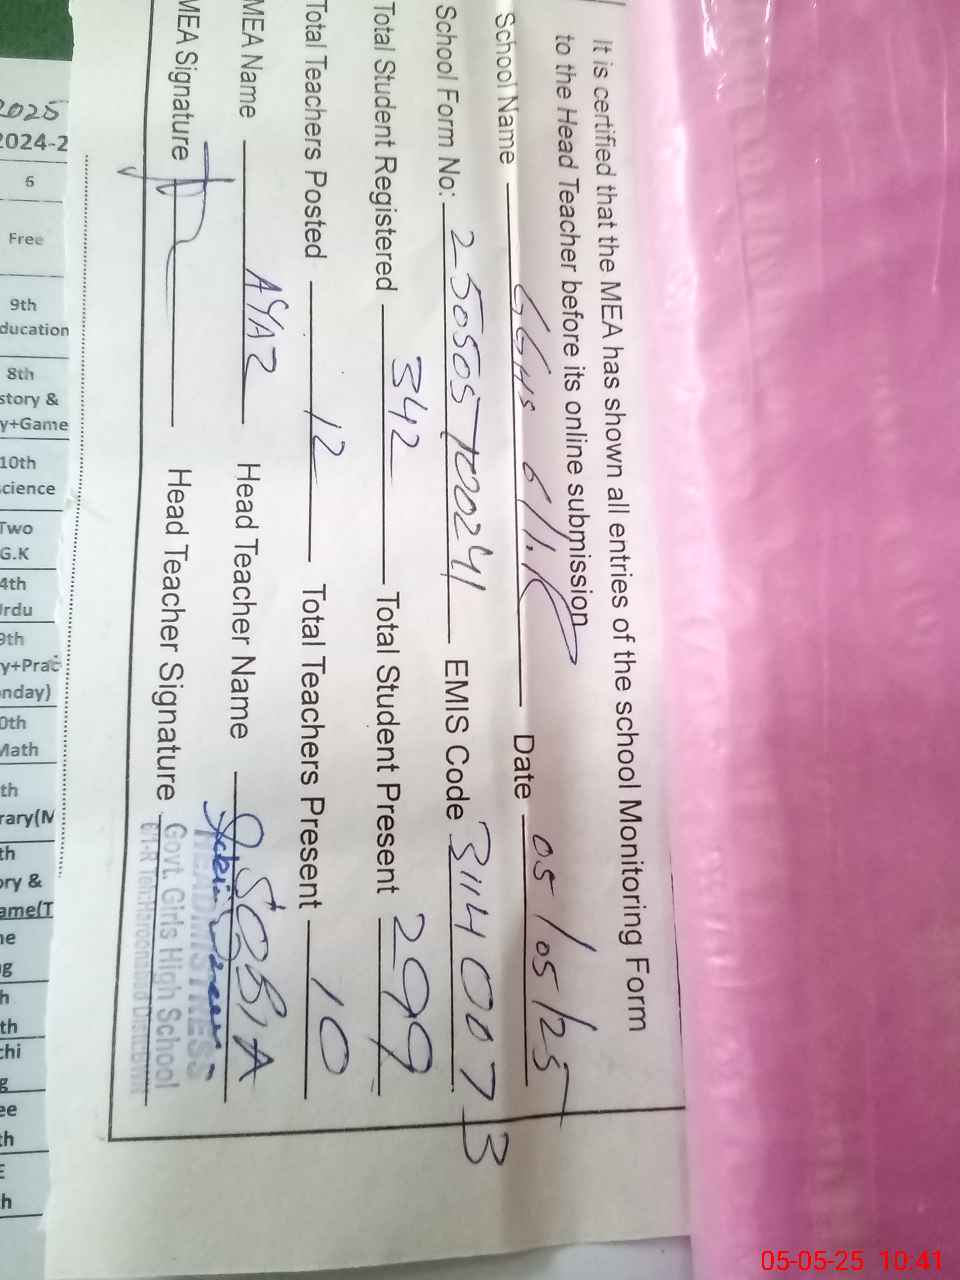 It is certified that the MEA has shown all entries of the school Monitoring Form
to the Head Teacher before its online submission
School Name GGHS 6/1.R Date 05/05/25
School Form No: 250505100241 EMIS Code 31140073
Total Student Registered 342 Total Student Present 299
Total Teachers Posted 12 Total Teachers Present 10
MEA Name AYAZ Head Teacher Name SOBIA
MEA Signature Head Teacher Signature
HEADMISTRESS
Govt. Girls High School
6/1-R Teh:Haroonabad Distt:BWN
2025
2024-2
6
Free
9th
ducation
8th
story &
y+Game
10th
cience
Two
G.K
4th
Urdu
9th
y+Prac
nday)
0th
Math
th
rary(M
th
ory &
ame(T
ne
g
h
th
chi
g
ee
th
E
h
05-05-25 10:41